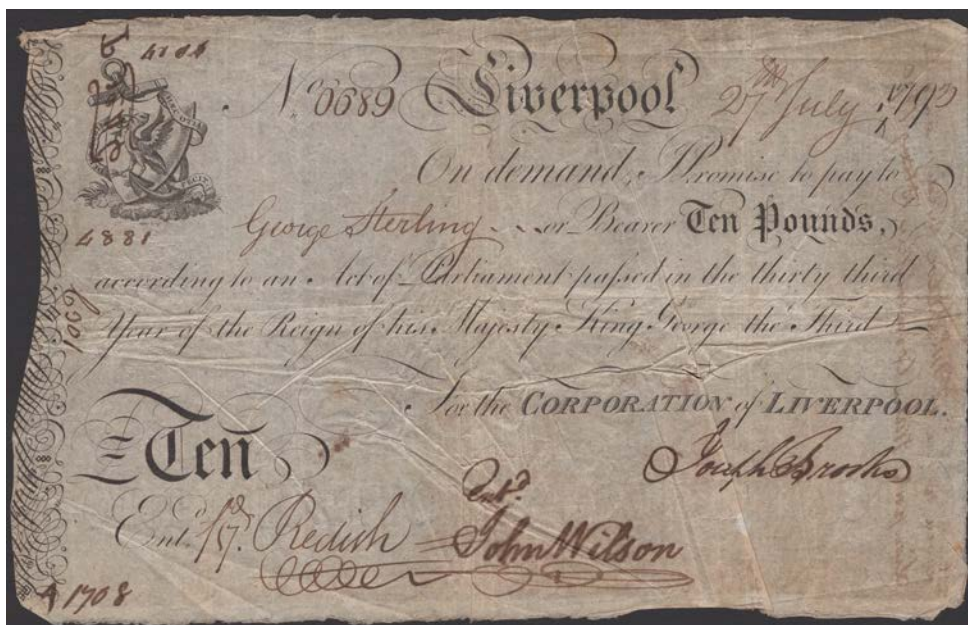 No 0689 Liverpool 27th July 1793
On demand, I Promise to pay to
George Sterling or Bearer Ten Pounds,
according to an Act of Parliament passed in the thirty third
Year of the Reign of his Majesty King George the Third
For the CORPORATION of LIVERPOOL.
Ten
Joseph Brooks
Ent.d
Ent.d Redish John Wilson
4881
1708